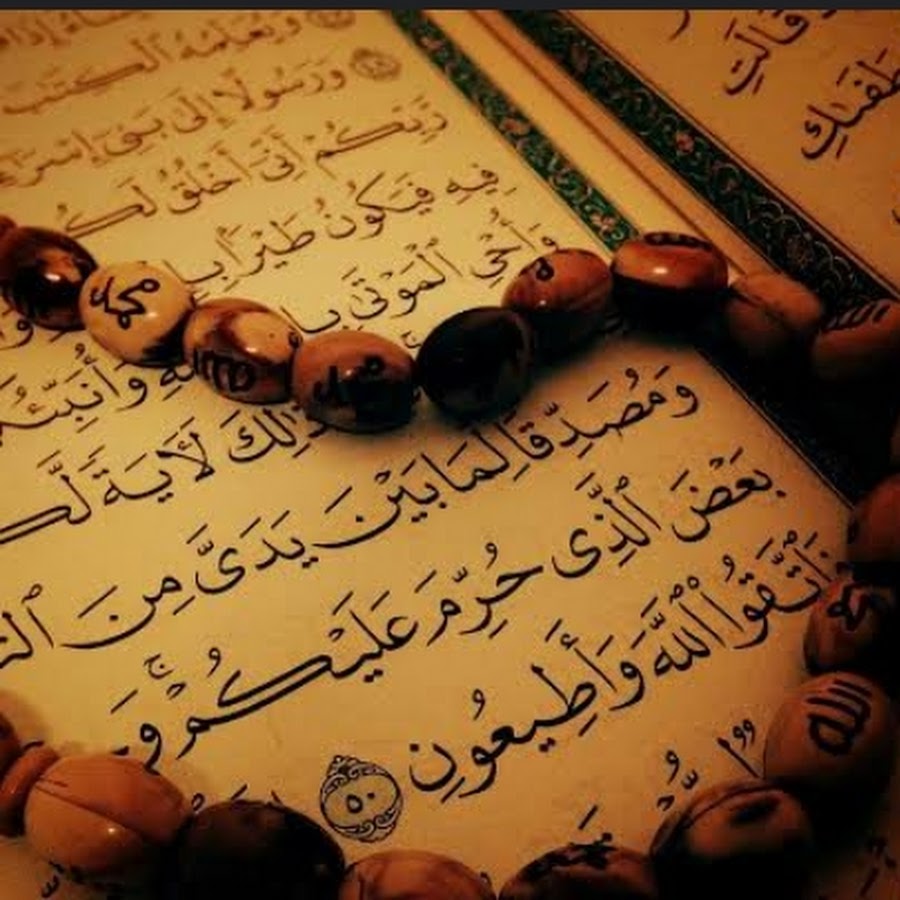 وَيُعَلِّمُهُ ٱلْكِتَٰبَ
٤٨ وَرَسُولًا إِلَىٰ بَنِىٓ إِسْرَٰٓ
رَّبِّكُمْ أَنِّىٓ أَخْلُقُ لَكُم
فِيهِ فَيَكُونُ طَيْرًۢا بِإِ
وَأُحْىِ ٱلْمَوْتَىٰ بِإِ
وَأُنَبِّئُكُم
ذَٰلِكَ لَءَايَةً لَّكُ
وَمُصَدِّقًا لِّمَا بَيْنَ يَدَىَّ مِنَ ٱلتَّ
بَعْضَ ٱلَّذِى حُرِّمَ عَلَيْكُمْ ۚ وَ
فَٱتَّقُوا۟ ٱللَّهَ وَأَطِيعُونِ ٥٠
قَالَتِ
طَفَىٰكِ
محمد
محمد
الله